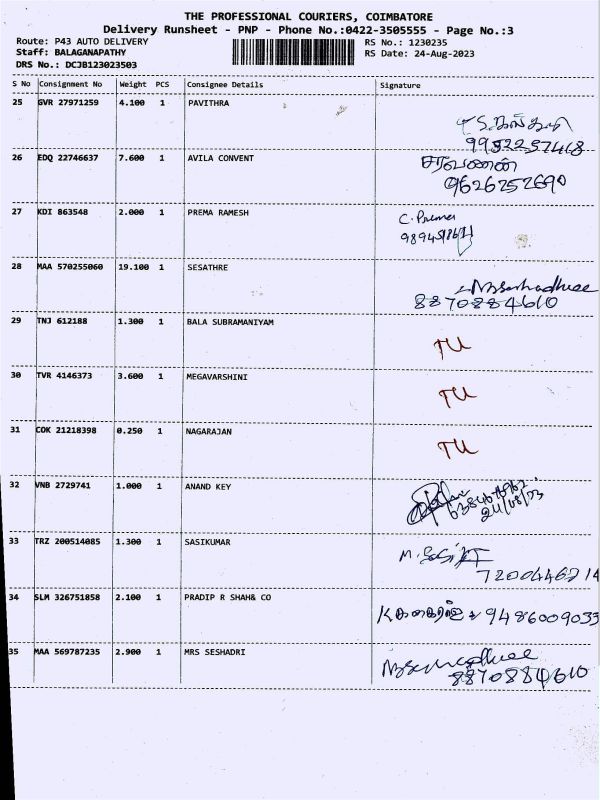 THE PROFESSIONAL COURIERS, COIMBATORE
Delivery Runsheet - PNP - Phone No.:0422-3505555 - Page No.:3
Route: P43 AUTO DELIVERY
RS No.: 1230235
Staff: BALAGANAPATHY
RS Date: 24-Aug-2023
DRS No.: DCJB123023503
S No Consignment No Weight PCS Consignee Details Signature
25 GVR 27971259 4.100 1 PAVITHRA
9952257418
26 EDQ 22746637 7.600 1 AVILA CONVENT சரவணன்
9626252690
27 KDI 863548 2.000 1 PREMA RAMESH C. Prema
28 MAA 570255060 19.100 1 SESATHRE
8870884610
29 TNJ 612188 1.300 1 BALA SUBRAMANIYAM TU
30 TVR 4146373 3.600 1 MEGAVARSHINI TU
31 COK 21218398 0.250 1 NAGARAJAN TU
32 VNB 2729741 1.000 1 ANAND KEY
24/08/23
33 TRZ 200514085 1.300 1 SASIKUMAR
7200446214
34 SLM 326751858 2.100 1 PRADIP R SHAH& CO 9486009033
35 MAA 569787235 2.900 1 MRS SESHADRI
8870884610